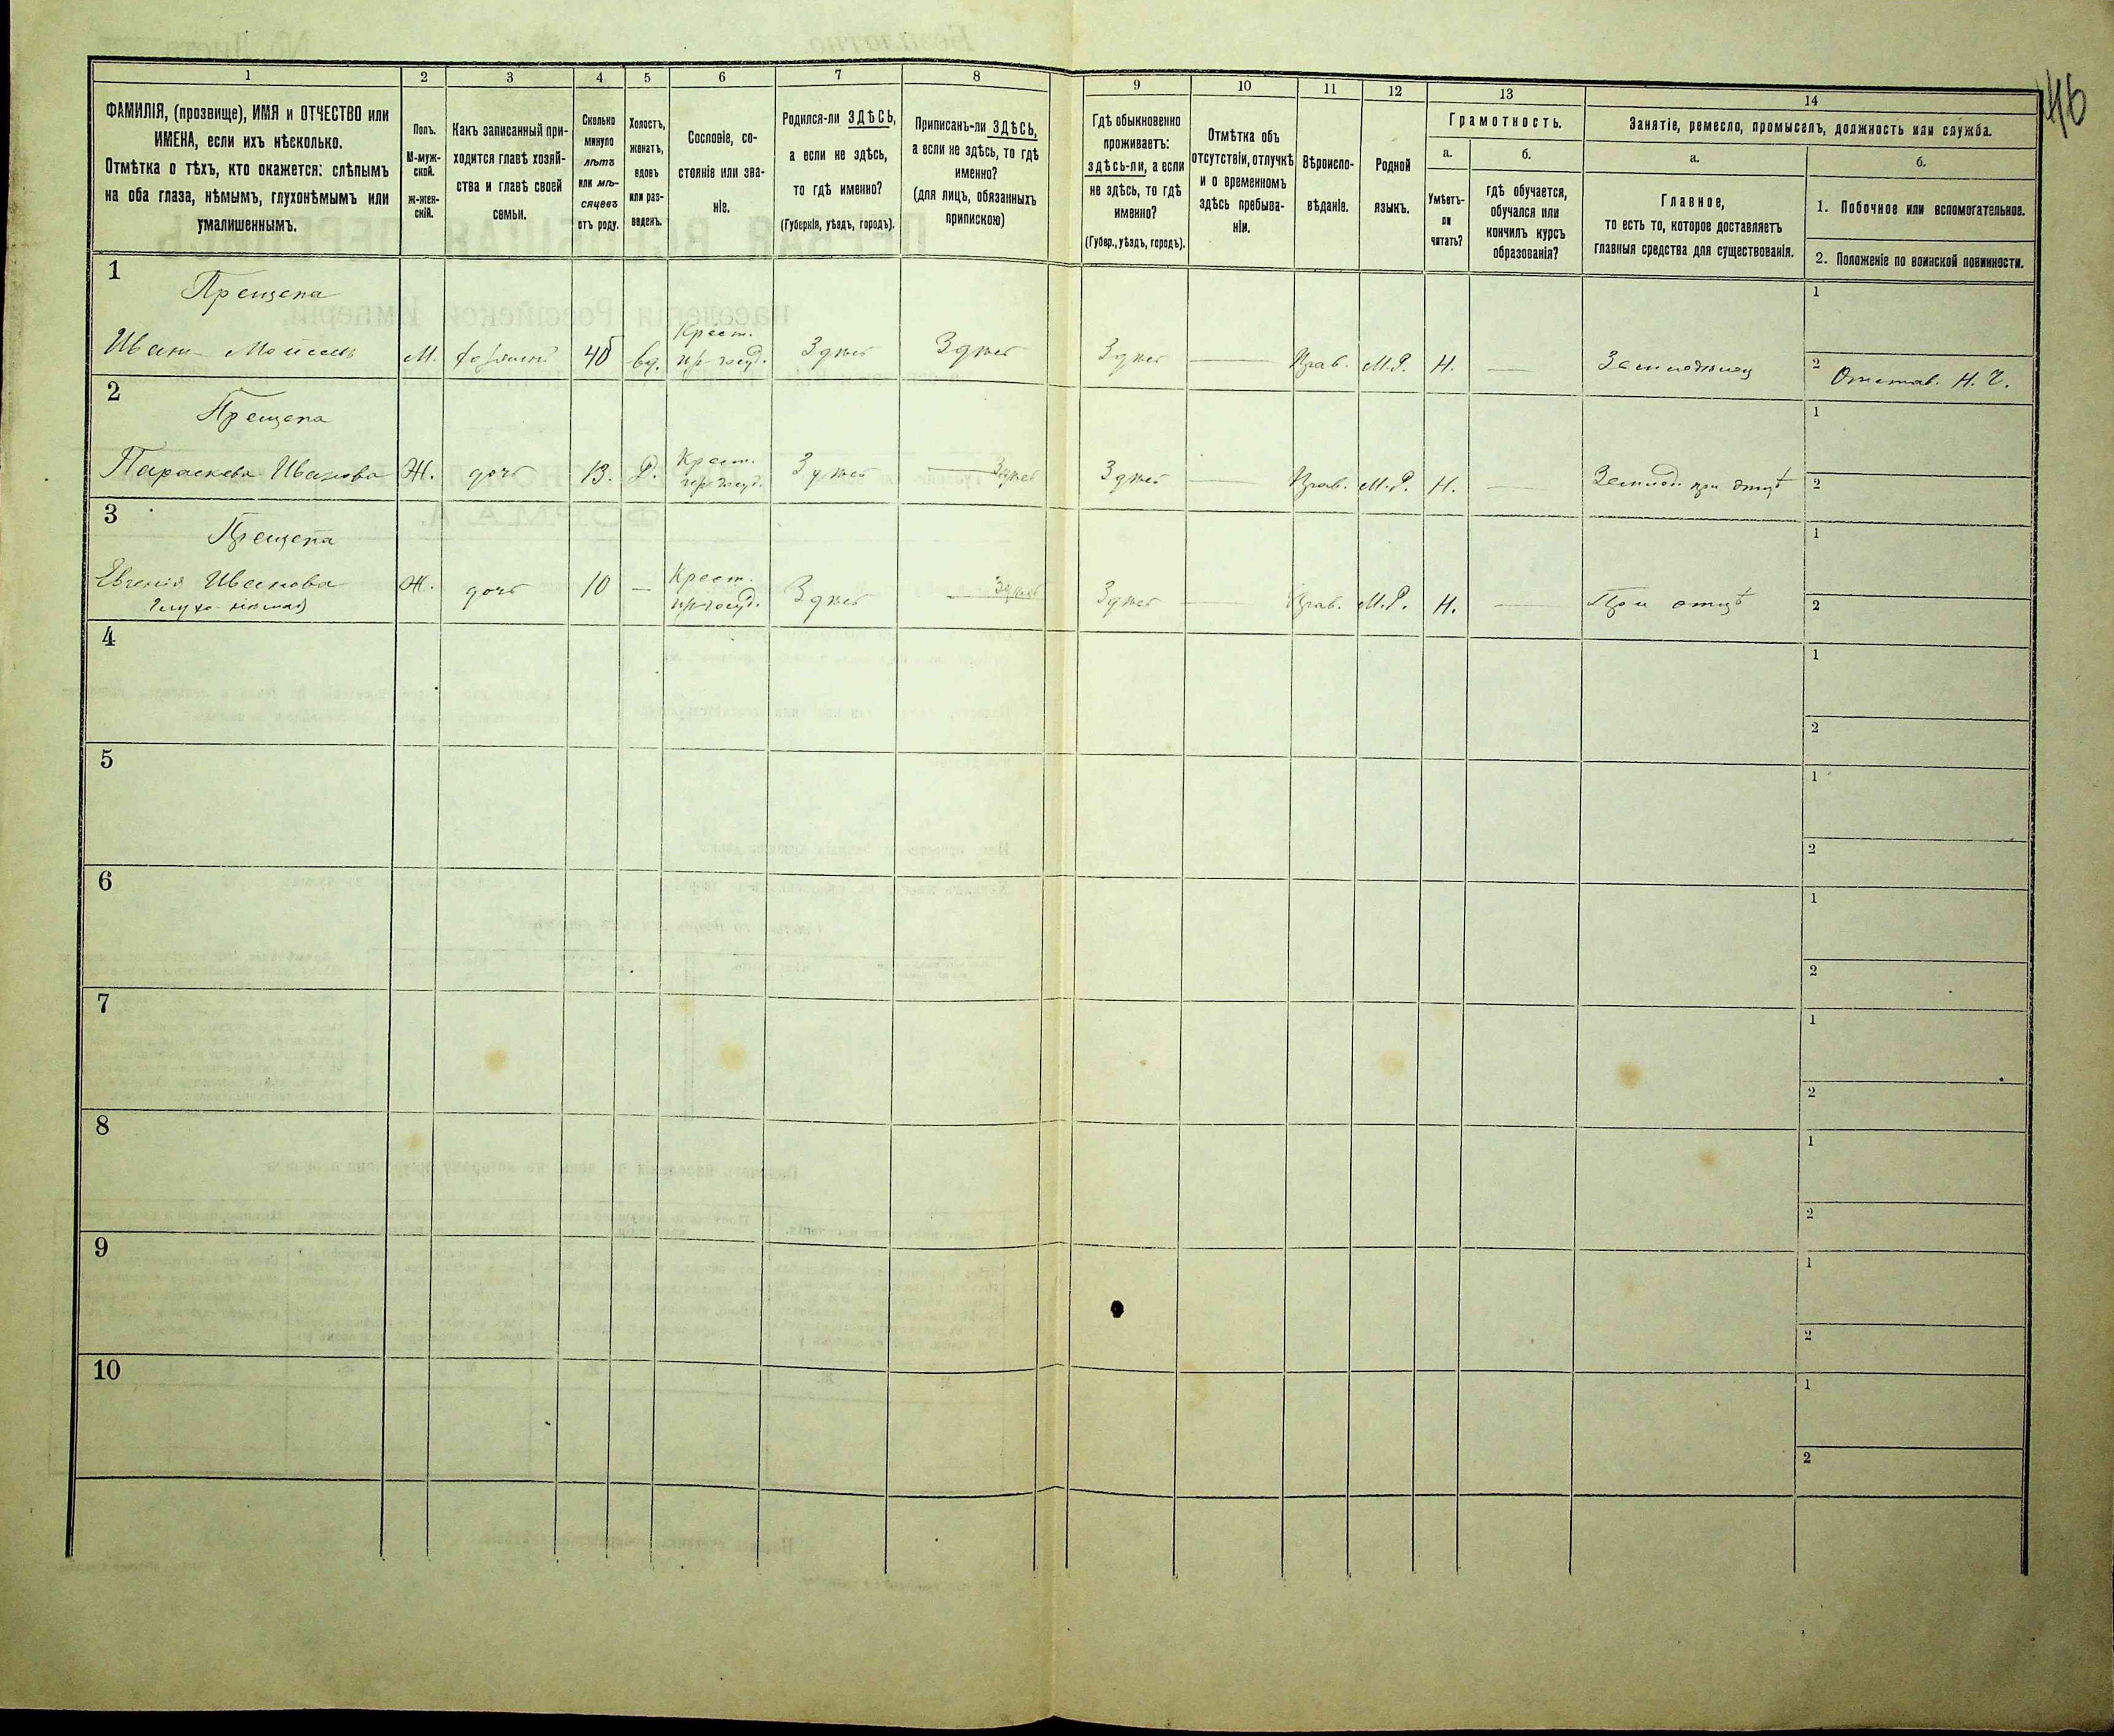 46
1 2 3 4 5 6 7 8 9 10 11 12 13 14
ФАМИЛІЯ, (прозвище), ИМЯ и ОТЧЕСТВО или
ИМЕНА, если ихъ нѣсколько.
Отмѣтка о тѣхъ, кто окажется: слѣпымъ
на оба глаза, нѣмымъ, глухонѣмымъ или
умалишеннымъ.
Полъ.
М-муж-
ской.
Ж-жен-
скій.
Какъ записанный при-
ходится главѣ хозяй-
ства и главѣ своей
семьи.
Сколько
минуло
лѣтъ
или мѣ-
сяцевъ
отъ роду.
Холостъ,
женатъ,
вдовъ
или раз-
веденъ.
Сословіе, со-
стояніе или зва-
ніе.
Родился-ли ЗДѢСЬ,
а если не здѣсь,
то гдѣ именно?
(Губернія, уѣздъ, городъ).
Приписанъ-ли ЗДѢСЬ,
а если не здѣсь, то гдѣ
именно?
(для лицъ, обязанныхъ
припискою)
Гдѣ обыкновенно
проживаетъ:
здѣсь-ли, а если
не здѣсь, то гдѣ
именно?
(Губер., уѣздъ, городъ).
Отмѣтка объ
отсутствіи, отлучкѣ
и о временномъ
здѣсь пребыва-
ніи.
Вѣроиспо-
вѣданіе.
Родной
языкъ.
Грамотность.
а.
Умѣетъ-
ли
читать?
б.
гдѣ обучается,
обучался или
кончилъ курсъ
образованія?
Занятіе, ремесло, промыселъ, должность или служба.
а.
Главное,
то есть то, которое доставляетъ
главныя средства для существованія.
б.
1. Побочное или вспомогательное.
2. Положеніе по воинской повинности.
1
Прещепа
Иванъ Моисеев
М. хозяинъ 45 вд. Крест. из госуд. Здѣсь Здѣсь Здѣсь — Прав. М.Р. Н. — Земледѣлец
1
2 Отстав. Н. Ч.
2
Прещепа
Параскева Иванова
Ж. дочь 13. Д. Крест. из госуд. Здѣсь — Здѣсь Здѣсь — Прав. М.Р. Н. — Землед. при отцѣ
1
2
3
Прещепа
Евгенія Иванова
Глухо-нѣмая)
Ж. дочь 10 — Крест. из госуд. Здѣсь — Здѣсь Здѣсь — Прав. М.Р. Н. — При отцѣ
1
2
4
1
2
5
1
2
6
1
2
7
1
2
8
1
2
9
1
2
10
1
2